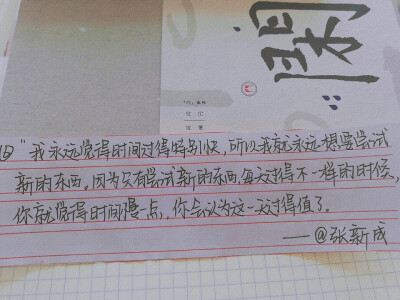 澜
"我永远觉得时间过得特别快，所以我就永远想要尝试
新的东西。因为只有尝试新的东西，每天过得不一样的时候，
你就觉得时间慢一点，你会认为这一天过得值了。
——@张新成